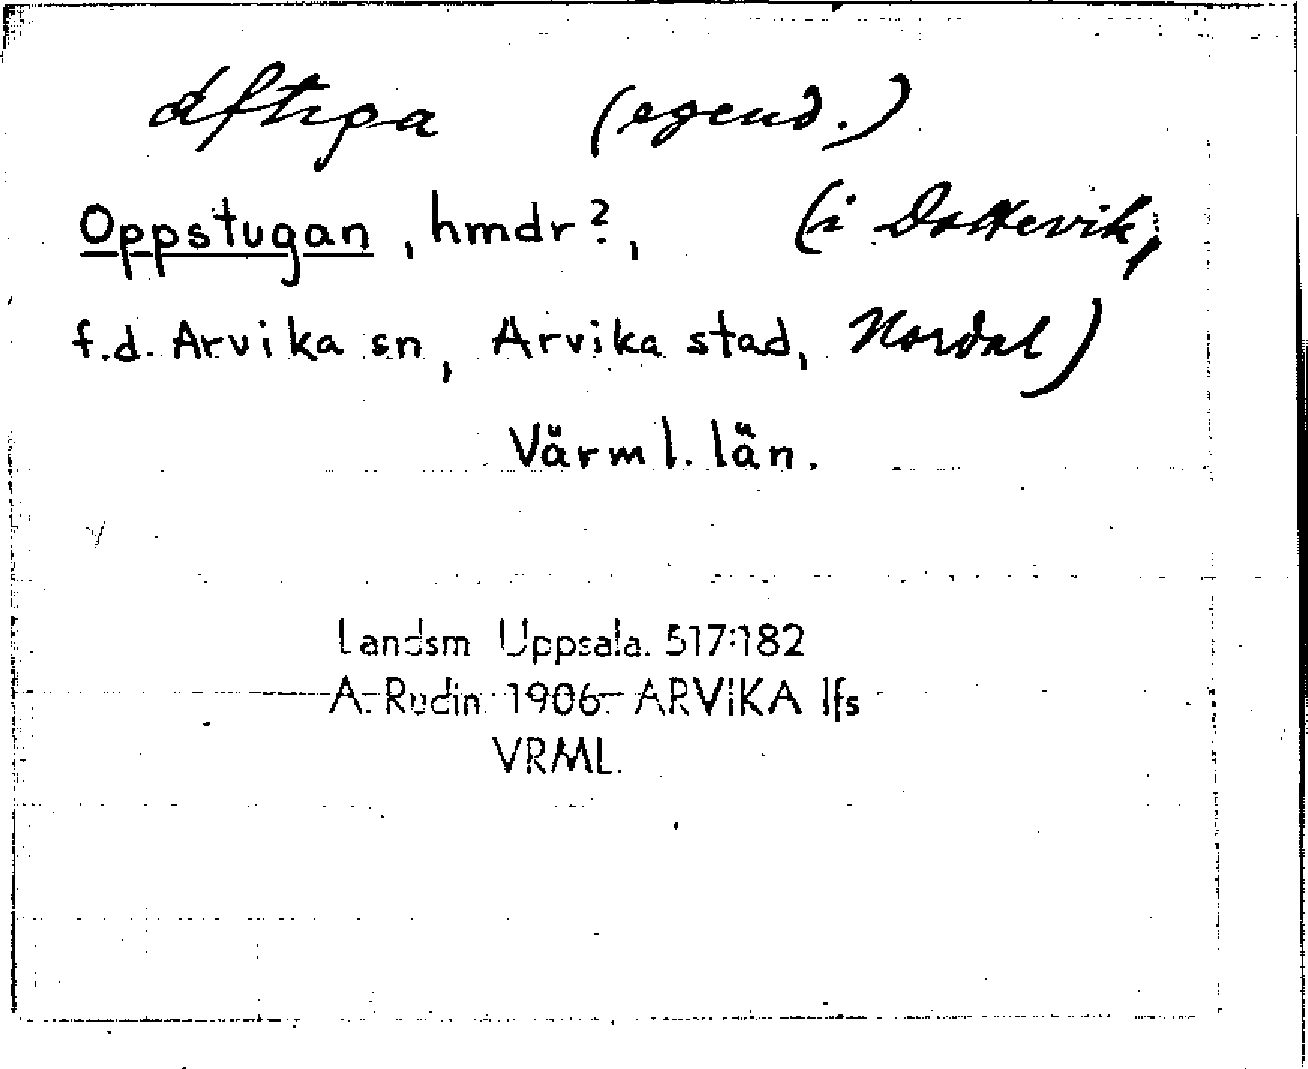 (egend.)
Oppstugan, hmdr?, (i Dottevik,
f.d. Arvika sn, Arvika stad, Nordal)
Värml. län.
Landsm Uppsala. 517:182
A. Rudin 1906 ARVIKA lfs
VRML.